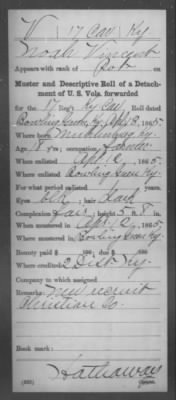 V 17 Cav Ky
Noah Vincent
Appears with rank of Pvt on
Muster and Descriptive Roll of a Detachment
of U. S. Vols. forwarded
for the 17 Reg't Ky Cav. Roll dated
Bowling Green, Ky Apl 8, 1865
Where born Muhlenburg, Ky.
Age 18 y'rs; occupation Farmer
When enlisted Apl, 1865
Where enlisted Bowling Green Ky.
For what period enlisted years.
Eyes Blk; hair Dark
Complexion Fair; height 5 ft. 8 in.
When mustered in Apl, 1865
Where mustered in Bowling Green Ky.
Bounty paid $ 100; due $ 100
Where credited 2 Dist Ky.
Company to which assigned
Remarks: New recruit
Christian Co.
Book mark:
Hathaway
Copyist.